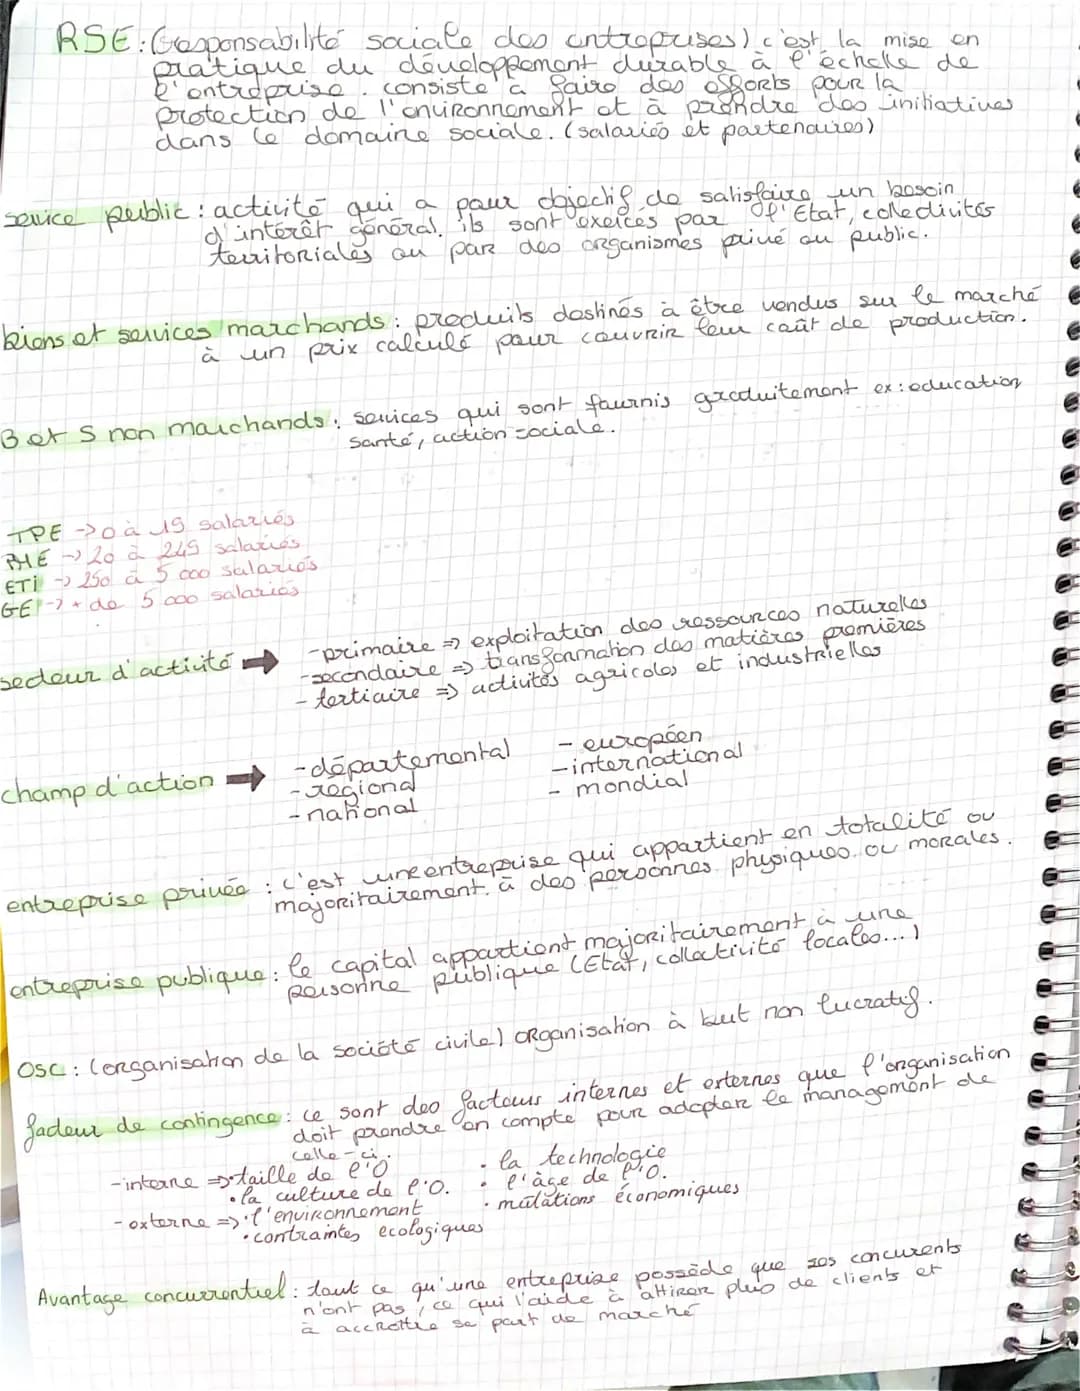 RSE : (responsabilité sociale des entreprises) c'est la mise en
pratique du développement durable à l'échelle de
l'entreprise. consiste à faire des efforts pour la
protection de l'environnement et à prendre des initiatives
dans le domaine sociale. (salariés et partenaires)
service public : activité qui a pour objectif de satisfaire un besoin
d'intérêt général. ils sont exercés par l'Etat, collectivités
territoriales ou par des organismes privé ou public.
biens et services marchands : produits destinés à être vendus sur le marché
à un prix calculé pour couvrir leur coût de production.
B et S non marchands : services qui sont fournis gratuitement ex : education
santé, action sociale.
TPE -> 0 à 19 salariés
PME -> 20 à 249 salariés
ETI -> 250 à 5 000 salariés
GE -> + de 5 000 salariés
secteur d'activité ➡ - primaire => exploitation des ressources naturelles
- secondaire => transformation des matières premières
- tertiaire => activités agricoles et industrielles
champ d'action ➡ - départemental - européen
- régional - international
- national - mondial
entreprise privée : c'est une entreprise qui appartient en totalité ou
majoritairement à des personnes physiques ou morales.
entreprise publique : le capital appartient majoritairement à une
personne publique (Etat, collectivité locales...)
OSC : (organisation de la société civile) organisation à but non lucratif.
facteur de contingence : ce sont des facteurs internes et externes que l'organisation
doit prendre en compte pour adapter le management de
celle-ci.
- interne => • taille de l'O • la technologie
• la culture de l'O. • l'âge de l'O.
- externe => • l'environnement • mutations économiques
• contraintes ecologiques
Avantage concurrentiel : tout ce qu'une entreprise possède que ses concurents
n'ont pas, ce qui l'aide à attirer plus de clients et
à accroître sa part de marché